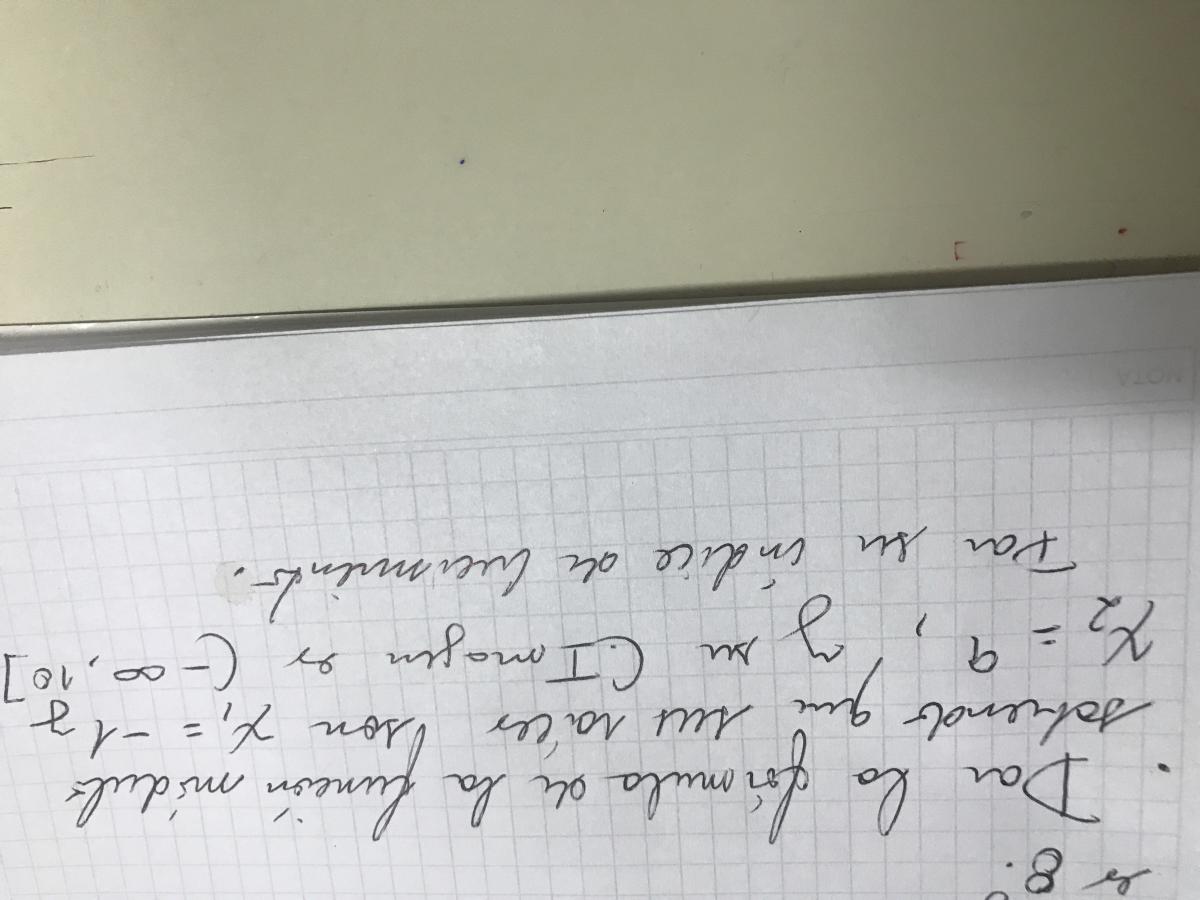 es 8.
. Dar la fórmula de la función módulo
sabiendo que sus raíces son x₁ = -1 y
x₂ = 9, y su C. Imagen es (-∞, 10]
Dar su índice de crecimiento.
NOTA